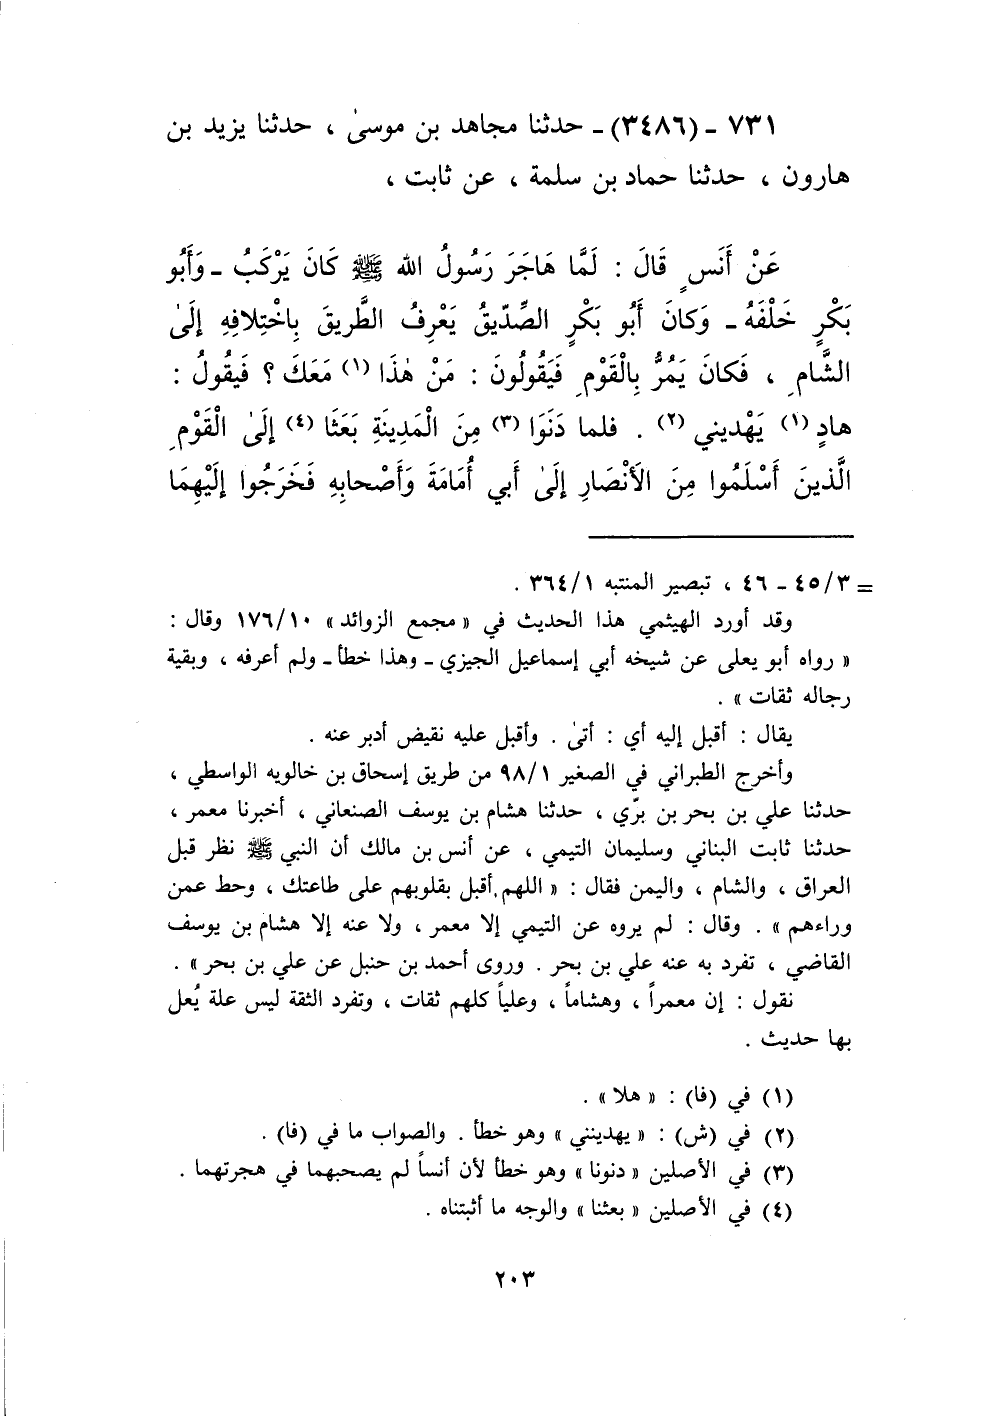 ٧٣١ - (٣٤٨٦) - حدثنا مجاهد بن موسىٰ ، حدثنا يزيد بن
هارون ، حدثنا حماد بن سلمة ، عن ثابت ،
عَنْ أَنَسٍ قَالَ : لَمَّا هَاجَرَ رَسُولُ الله ﷺ كَانَ يَرْكَبُ - وَأَبُو
بَكْرٍ خَلْفَهُ - وَكَانَ أَبُو بَكْرٍ الصِّدِّيقُ يَعْرِفُ الطَّرِيقَ بِاخْتِلافِهِ إِلَىٰ
الشَّامِ ، فَكانَ يَمُرُّ بِالْقَوْمِ فَيَقُولُونَ : مَنْ هٰذَا (١) مَعَكَ ؟ فَيقُولُ :
هادٍ (١) يَهْديني (٢) . فلما دَنَوَا (٣) مِنَ الْمَدِينَةِ بَعَثَا (٤) إِلَىٰ الْقَوْمِ
الَّذينَ أَسْلَمُوا مِنَ الأَنْصَارِ إِلَىٰ أَبي أُمَامَةَ وَأَصْحابِهِ فَخَرَجُوا إِلَيْهِمَا
= ٤٥/٣ - ٤٦ ، تبصير المنتبه ٣٦٤/١ .
وقد أورد الهيثمي هذا الحديث في « مجمع الزوائد » ١٧٦/١٠ وقال :
« رواه أبو يعلى عن شيخه أبي إسماعيل الجيزي - وهذا خطأ - ولم أعرفه ، وبقية
رجاله ثقات » .
يقال : أقبل إليه أي : أتىٰ . وأقبل عليه نقيض أدبر عنه .
وأخرج الطبراني في الصغير ٩٨/١ من طريق إسحاق بن خالويه الواسطي ،
حدثنا علي بن بحر بن برّي ، حدثنا هشام بن يوسف الصنعاني ، أخبرنا معمر ،
حدثنا ثابت البناني وسليمان التيمي ، عن أنس بن مالك أن النبي ﷺ نظر قبل
العراق ، والشام ، واليمن فقال : « اللهم أقبل بقلوبهم على طاعتك ، وحط عمن
وراءهم » . وقال : لم يروه عن التيمي إلا معمر ، ولا عنه إلا هشام بن يوسف
القاضي ، تفرد به عنه علي بن بحر . وروى أحمد بن حنبل عن علي بن بحر » .
نقول : إن معمراً ، وهشاماً ، وعلياً كلهم ثقات ، وتفرد الثقة ليس علة يُعل
بها حديث .
(١) في (فا) : « هلا » .
(٢) في (ش) : « يهدينني » وهو خطأ . والصواب ما في (فا) .
(٣) في الأصلين « دنونا » وهو خطأ لأن أنساً لم يصحبهما في هجرتهما .
(٤) في الأصلين « بعثنا » والوجه ما أثبتناه .
٢٠٣